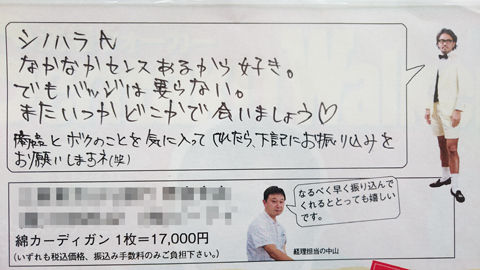 シノハラA
なかなかセンスあるから好き。
でもバッジは要らない。
またいつかどこかで会いましょう♡
商品とボクのことを気に入ってくれたら、下記にお振り込みを
お願いしますネ(笑)
なるべく早く振り込んで
くれるととっても嬉しい
です。
綿カーディガン 1枚=17,000円
(いずれも税込価格、振込み手数料のみご負担下さい。)
経理担当の中山